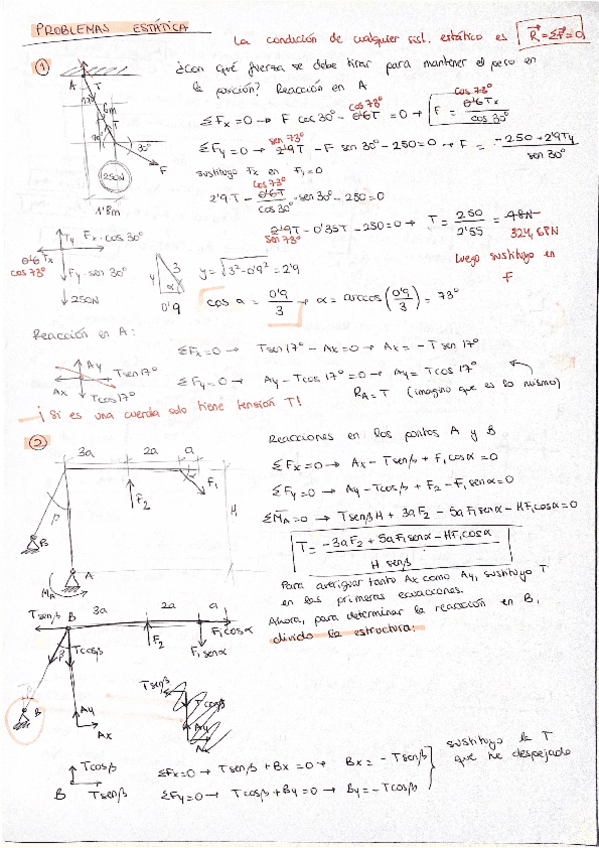 PROBLEMAS ESTÁTICA
La condición de cualquier sist. estático es R = ΣF = 0
① ¿Con qué fuerza se debe tirar para mantener el peso en
la posición? Reacción en A
A T
6m
30°
250N F
1'8m
cos 73° cos 73°
ΣFx = 0 → F cos 30° - 0'6T = 0 → F = 0'6Tx / cos 30°
sen 73°
ΣFy = 0 → 2'9T - F sen 30° - 250 = 0 → F = -250 + 2'9Ty / sen 30°
sustituyo Fx en Fy = 0
cos 73°
2'9T - 0'6T / cos 30° · sen 30° - 250 = 0
2'9T - 0'35T - 250 = 0 → T = 250 / 2'55 =
sen 73°
324,6PN
luego sustituyo en
F
Ty Fx · cos 30°
0'6 Tx
cos 73°
Fy · sen 30°
250N
y 3 α 0'9
y = √3² - 0'9² = 2'9
cos α = 0'9 / 3 → α = arccos (0'9 / 3) = 73°
Reacción en A:
Ay Tsen17°
Ax Tcos17°
ΣFx = 0 → T sen 17° - Ax = 0 → Ax = - T sen 17°
ΣFy = 0 → Ay - T cos 17° = 0 → Ay = T cos 17°
RA = T (imagino que es lo mismo)
¡Si es una cuerda solo tiene tensión T!
② Reacciones en los puntos A y B
3a 2a a
F1
F2
H
β
B
A
MA
ΣFx = 0 → Ax - T senβ + F1 cosα = 0
ΣFy = 0 → Ay - T cosβ + F2 - F1 senα = 0
ΣMA = 0 → T senβ H + 3aF2 - 5aF1 senα - HF1 cosα = 0
T = -3aF2 + 5aF1 senα - HF1 cosα / H senβ
Para averiguar tanto Ax como Ay, sustituyo T
en las primeras ecuaciones.
Ahora, para determinar la reacción en B,
divido la estructura:
T senβ B 3a 2a a
F1 cosα
F2
F1 senα
β Tcosβ
B
Ay
Ax
T senβ
T cosβ
Tcosβ
B Tsenβ
ΣFx = 0 → T senβ + Bx = 0 → Bx = - T senβ
ΣFy = 0 → T cosβ + By = 0 → By = - T cosβ
sustituyo la T
que he despejado